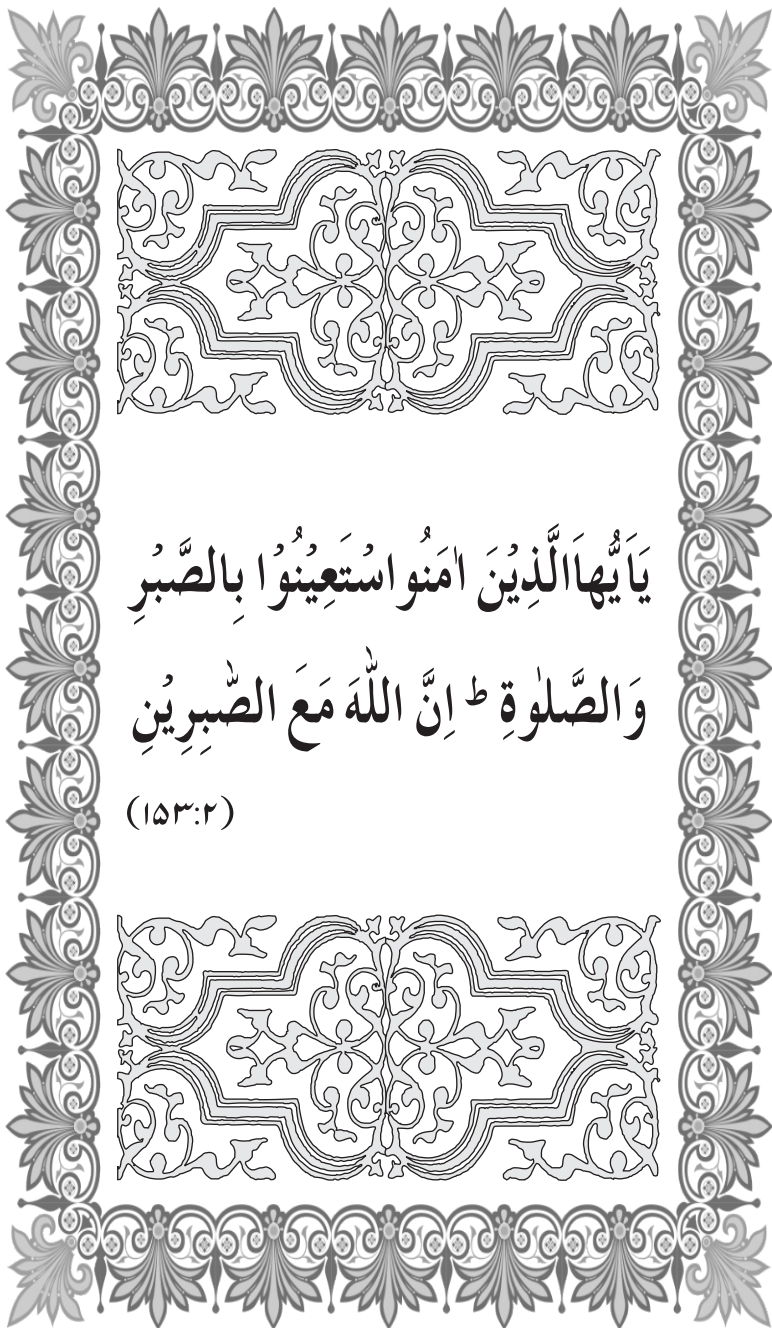 يَاَيُّهاَالَّذِيْنَ اٰمَنُو اسْتَعِيْنُوْا بِالصَّبْرِ
وَالصَّلٰوةِ ط اِنَّ اللّٰهَ مَعَ الصّٰبِرِيْنِ
(۱۵۳:۲)